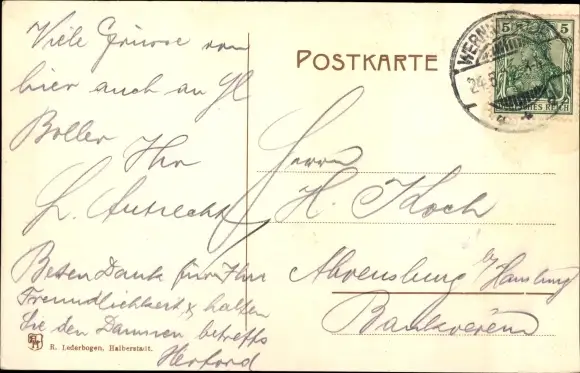 Viele Grüsse von
hier auch an Frl
Boller Ihr
L. Autrecht
Besten Dank für Ihre
Freundlichkeit & halten
Sie den Daumen betreffs
Herford
R. Lederbogen, Halberstadt.
POSTKARTE
5 5
WERNI
24.5
DEUTSCHES REICH
Herrn
H. Koch
Ahrensburg b/Hamburg
Bankverein